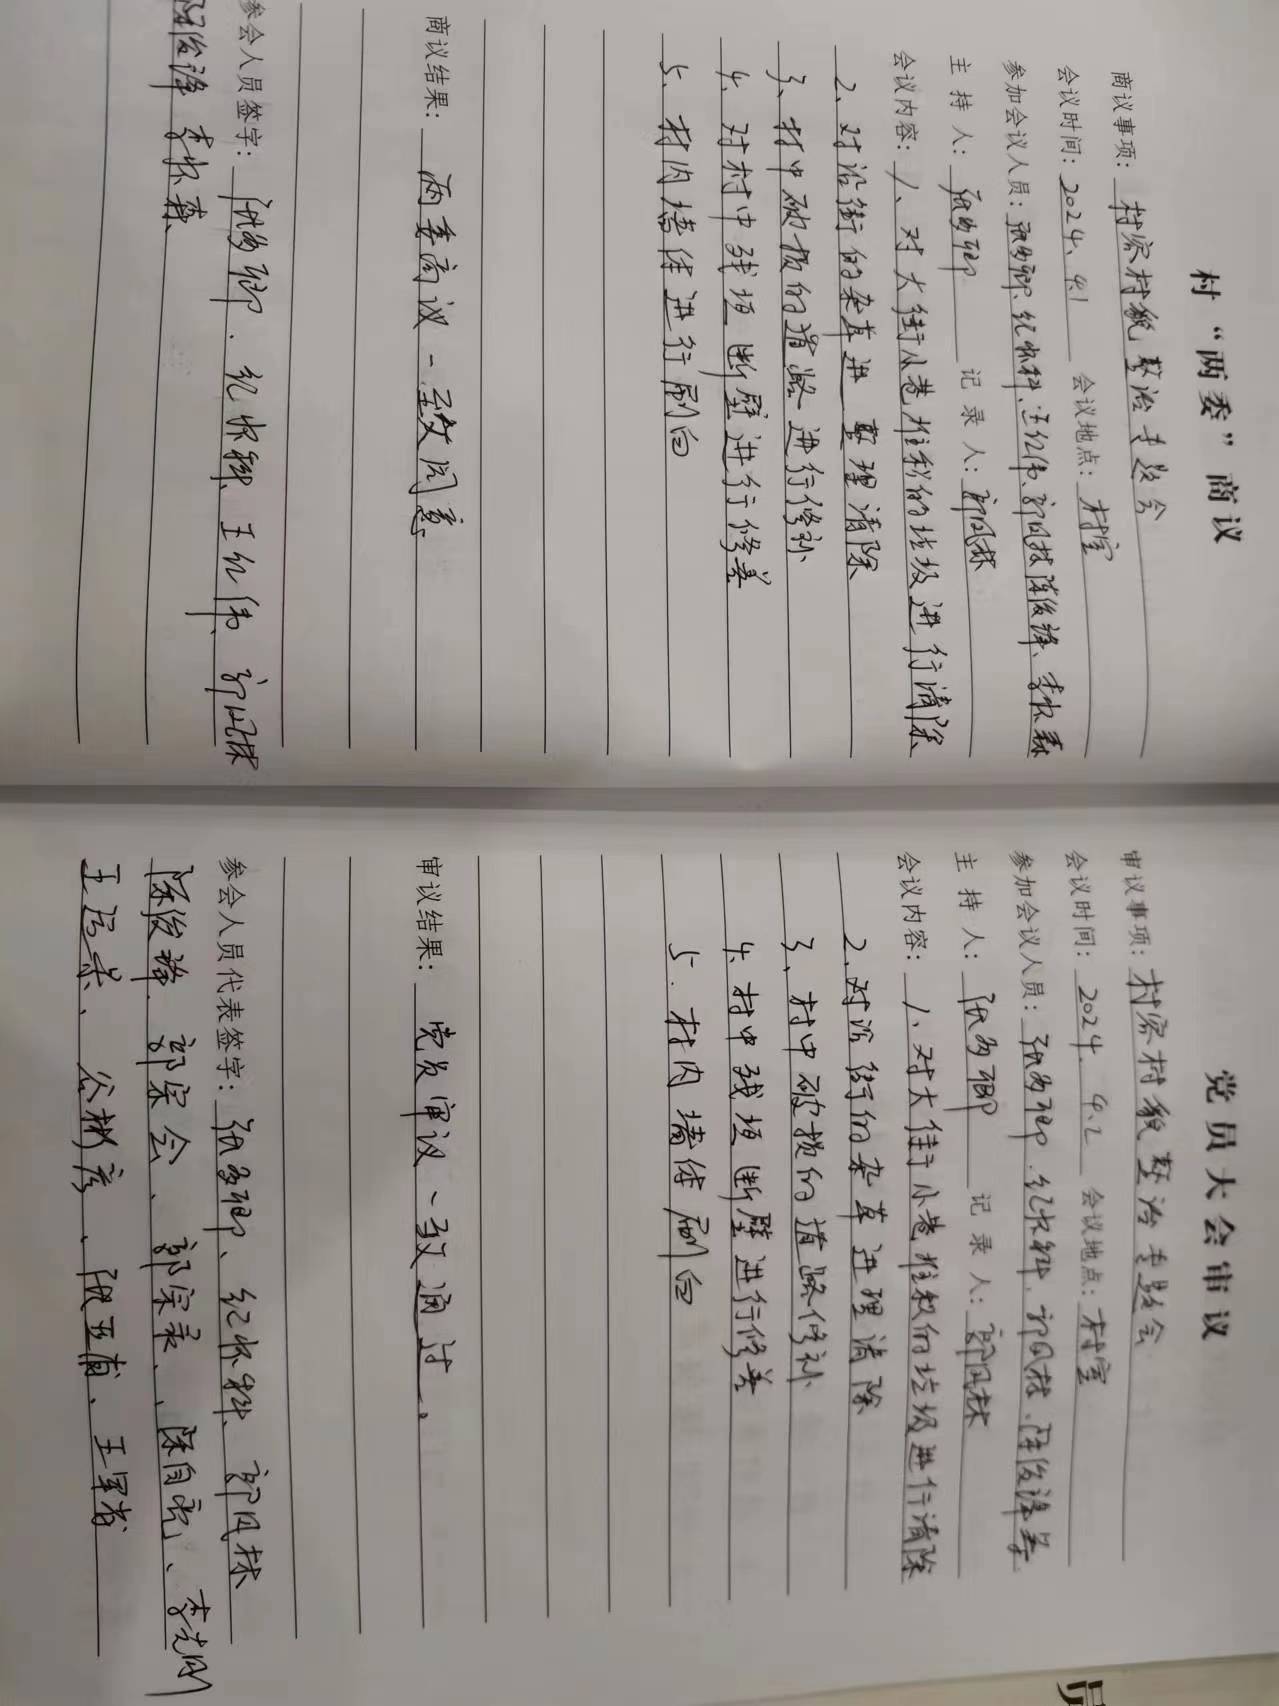 村“两委”商议
商议事项：村容村貌整治专题会
会议时间：2024、4.1 会议地点：村室
参加会议人员：纪怀科、王红伟、郭凤林、陈俊锋、李怀森
主持人： 记录人：郭凤林
会议内容：1、对大街小巷堆积的垃圾进行清除
2、对沿街的杂草进 整理清除
3、村中破损的道路进行修补
4、对村中残垣断壁进行修善
5、村内墙体进行刷白
商议结果：两委商议一致同意
参会人员签字： 纪怀科、王红伟、郭凤林
陈俊锋 李怀森
党员大会审议
审议事项：村容村貌整治专题会
会议时间：2024、4.2 会议地点：村室
参加会议人员： 纪怀科、郭凤林、陈俊锋等
主持人： 记录人：郭凤林
会议内容：1、对大街小巷堆积的垃圾进行清除
2、对沿街的杂草进理清除
3、村中破损的道路修补
4、村中残垣断壁进行修善
5、村内墙体刷白
审议结果：党员审议一致通过。
参会人员代表签字： 纪怀科、郭凤林
陈俊锋、郭宗会、郭宗录、李光刚
王军
员